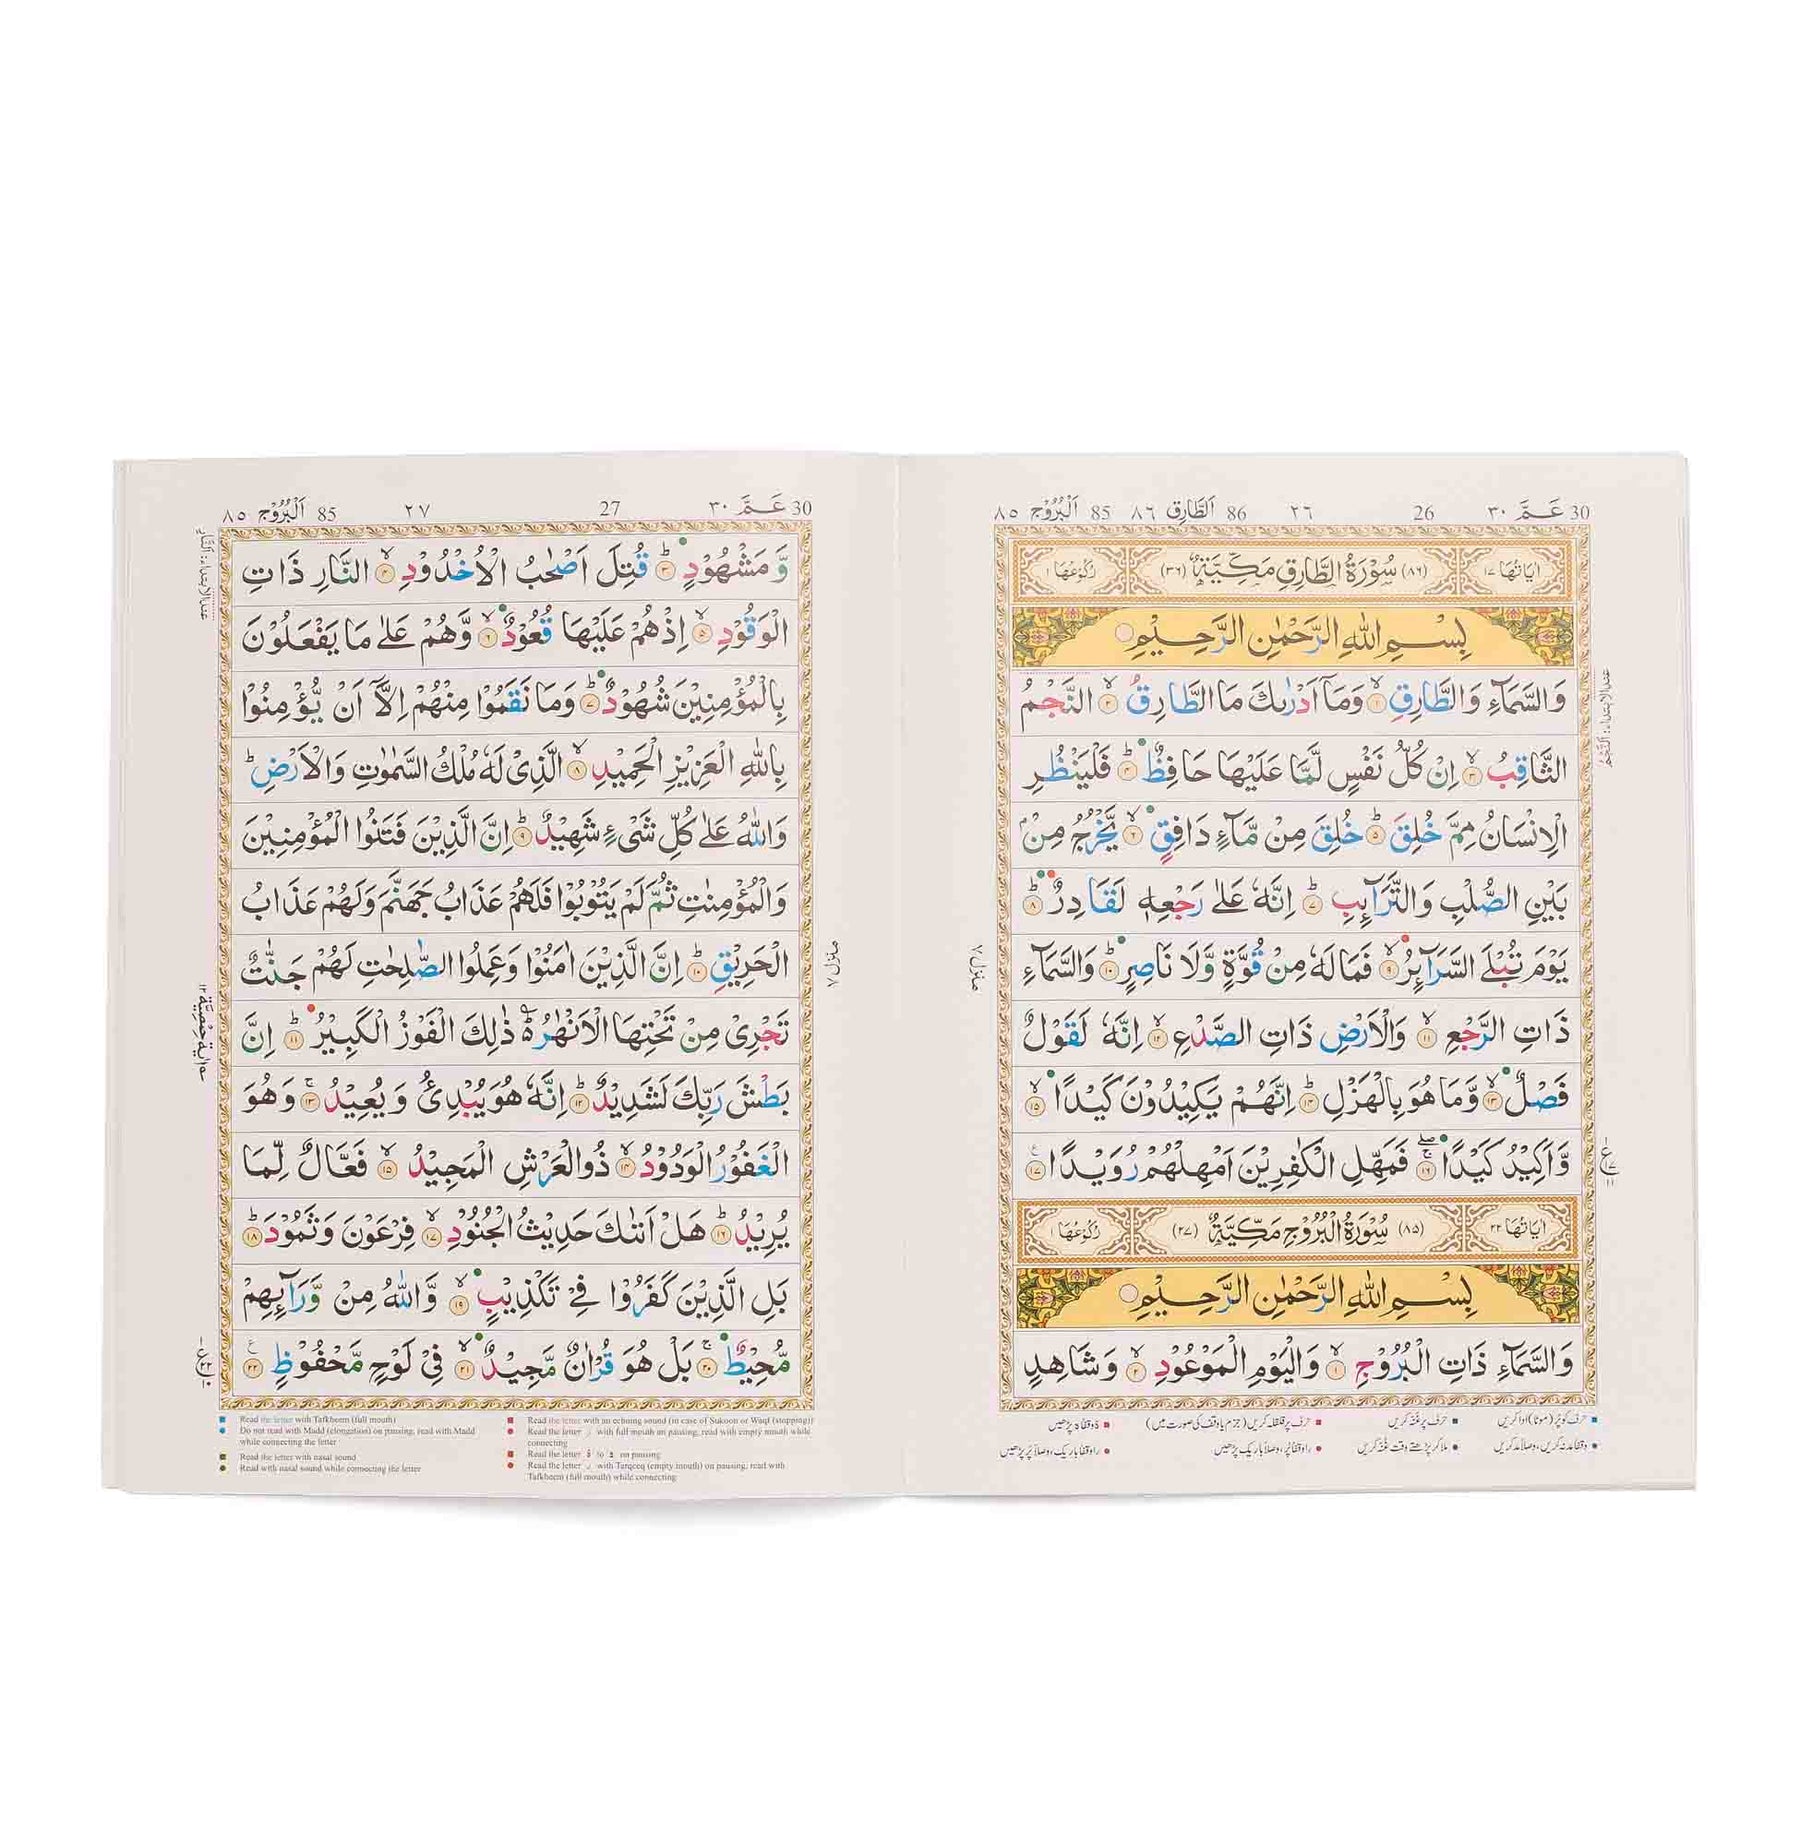 30 عَمَّ ٣٠ 26 ٢٦ 86 اَلطَّارِق ٨٦ 85 اَلْبُرُوْج ٨٥
اٰيَاتُهَا ١٧ (٨٦) سُوْرَةُ الطَّارِقِ مَكِّيَّةٌ (٣٦) رُكُوْعُهَا ١
بِسْمِ اللّٰهِ الرَّحْمٰنِ الرَّحِيْمِ
وَالسَّمَآءِ وَالطَّارِقِ ۙ ١ وَمَآ اَدْرٰىكَ مَا الطَّارِقُ ۙ ٢ النَّجْمُ
الثَّاقِبُ ۙ ٣ اِنْ كُلُّ نَفْسٍ لَّمَّا عَلَيْهَا حَافِظٌ ؕ ٤ فَلْيَنْظُرِ
الْاِنْسَانُ مِمَّ خُلِقَ ؕ ٥ خُلِقَ مِنْ مَّآءٍ دَافِقٍ ۙ ٦ يَّخْرُجُ مِنْۢ
بَيْنِ الصُّلْبِ وَالتَّرَآئِبِ ؕ ٧ اِنَّهٗ عَلٰى رَجْعِهٖ لَقَادِرٌ ؕ ٨
يَوْمَ تُبْلَى السَّرَآئِرُ ۙ ٩ فَمَا لَهٗ مِنْ قُوَّةٍ وَّلَا نَاصِرٍ ؕ ١٠ وَالسَّمَآءِ
ذَاتِ الرَّجْعِ ۙ ١١ وَالْاَرْضِ ذَاتِ الصَّدْعِ ۙ ١٢ اِنَّهٗ لَقَوْلٌ
فَصْلٌ ۙ ١٣ وَّمَا هُوَ بِالْهَزْلِ ؕ ١٤ اِنَّهُمْ يَكِيْدُوْنَ كَيْدًا ۙ ١٥
وَّاَكِيْدُ كَيْدًا ۚۖ ١٦ فَمَهِّلِ الْكٰفِرِيْنَ اَمْهِلْهُمْ رُوَيْدًا ١٧
اٰيَاتُهَا ٢٢ (٨٥) سُوْرَةُ الْبُرُوْجِ مَكِّيَّةٌ (٢٧) رُكُوْعُهَا ١
بِسْمِ اللّٰهِ الرَّحْمٰنِ الرَّحِيْمِ
وَالسَّمَآءِ ذَاتِ الْبُرُوْجِ ۙ ١ وَالْيَوْمِ الْمَوْعُوْدِ ۙ ٢ وَشَاهِدٍ
منزل ٧
حرف کو پُر (موٹا) ادا کریں حرف پر غنّہ کریں حرف پر قلقلہ کریں (جزم یا وقف کی صورت میں) ۃ وقفاً ہ پڑھیں
وقفاً مد نہ کریں، وصلاً مد کریں ملا کر پڑھتے وقت غنّہ کریں را وقفاً پُر، وصلاً باریک پڑھیں را وقفاً باریک، وصلاً پُر پڑھیں
30 عَمَّ ٣٠ 27 ٢٧ 85 اَلْبُرُوْج ٨٥
وَّمَشْهُوْدٍ ؕ ٣ قُتِلَ اَصْحٰبُ الْاُخْدُوْدِ ۙ ٤ النَّارِ ذَاتِ
الْوَقُوْدِ ۙ ٥ اِذْ هُمْ عَلَيْهَا قُعُوْدٌ ۙ ٦ وَّهُمْ عَلٰى مَا يَفْعَلُوْنَ
بِالْمُؤْمِنِيْنَ شُهُوْدٌ ؕ ٧ وَمَا نَقَمُوْا مِنْهُمْ اِلَّاۤ اَنْ يُّؤْمِنُوْا
بِاللّٰهِ الْعَزِيْزِ الْحَمِيْدِ ۙ ٨ الَّذِيْ لَهٗ مُلْكُ السَّمٰوٰتِ وَالْاَرْضِ ؕ
وَاللّٰهُ عَلٰى كُلِّ شَيْءٍ شَهِيْدٌ ؕ ٩ اِنَّ الَّذِيْنَ فَتَنُوا الْمُؤْمِنِيْنَ
وَالْمُؤْمِنٰتِ ثُمَّ لَمْ يَتُوْبُوْا فَلَهُمْ عَذَابُ جَهَنَّمَ وَلَهُمْ عَذَابُ
الْحَرِيْقِ ؕ ١٠ اِنَّ الَّذِيْنَ اٰمَنُوْا وَعَمِلُوا الصّٰلِحٰتِ لَهُمْ جَنّٰتٌ
تَجْرِيْ مِنْ تَحْتِهَا الْاَنْهٰرُ ؕ ذٰلِكَ الْفَوْزُ الْكَبِيْرُ ؕ ١١ اِنَّ
بَطْشَ رَبِّكَ لَشَدِيْدٌ ؕ ١٢ اِنَّهٗ هُوَ يُبْدِئُ وَيُعِيْدُ ۚ ١٣ وَهُوَ
الْغَفُوْرُ الْوَدُوْدُ ۙ ١٤ ذُو الْعَرْشِ الْمَجِيْدُ ۙ ١٥ فَعَّالٌ لِّمَا
يُرِيْدُ ؕ ١٦ هَلْ اَتٰىكَ حَدِيْثُ الْجُنُوْدِ ۙ ١٧ فِرْعَوْنَ وَثَمُوْدَ ؕ ١٨
بَلِ الَّذِيْنَ كَفَرُوْا فِيْ تَكْذِيْبٍ ۙ ١٩ وَّاللّٰهُ مِنْ وَّرَآئِهِمْ
مُّحِيْطٌ ۚ ٢٠ بَلْ هُوَ قُرْاٰنٌ مَّجِيْدٌ ۙ ٢١ فِيْ لَوْحٍ مَّحْفُوْظٍ ٢٢
منزل ٧
Read the letter with Tafkheem (full mouth)
Do not read with Madd (elongation) on pausing, read with Madd
while connecting the letter
Read the letter with nasal sound
Read with nasal sound while connecting the letter
Read the letter with an echoing sound (in case of Sukoon or Waqf (stopping))
Read the letter ر with full mouth on pausing, read with empty mouth while
connecting
Read the letter ة to ه on pausing
Read the letter ر with Tarqeeq (empty mouth) on pausing, read with
Tafkheem (full mouth) while connecting